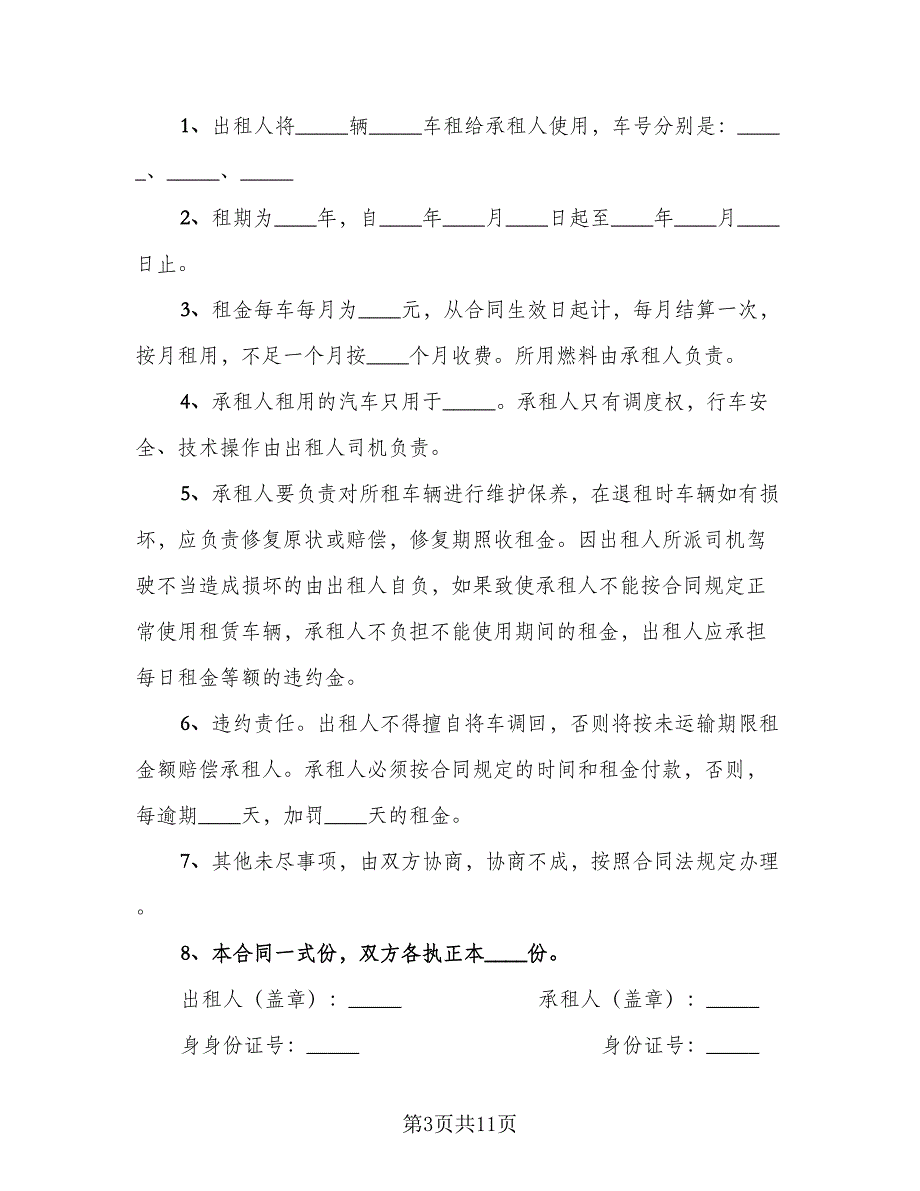 1、出租人将_____辆_____车租给承租人使用，车号分别是：____
_、_____、_____
2、租期为____年，自____年____月____日起至____年____月____
日止。
3、租金每车每月为____元，从合同生效日起计，每月结算一次，
按月租用，不足一个月按____个月收费。所用燃料由承租人负责。
4、承租人租用的汽车只用于_____。承租人只有调度权，行车安
全、技术操作由出租人司机负责。
5、承租人要负责对所租车辆进行维护保养，在退租时车辆如有损
坏，应负责修复原状或赔偿，修复期照收租金。因出租人所派司机驾
驶不当造成损坏的由出租人自负，如果致使承租人不能按合同规定正
常使用租赁车辆，承租人不负担不能使用期间的租金，出租人应承担
每日租金等额的违约金。
6、违约责任。出租人不得擅自将车调回，否则将按未运输期限租
金额赔偿承租人。承租人必须按合同规定的时间和租金付款，否则，
每逾期____天，加罚____天的租金。
7、其他未尽事项，由双方协商，协商不成，按照合同法规定办理
。
8、本合同一式份，双方各执正本____份。
出租人（盖章）：_____ 承租人（盖章）：_____
身身份证号：_____ 身份证号：_____
第3页共11页